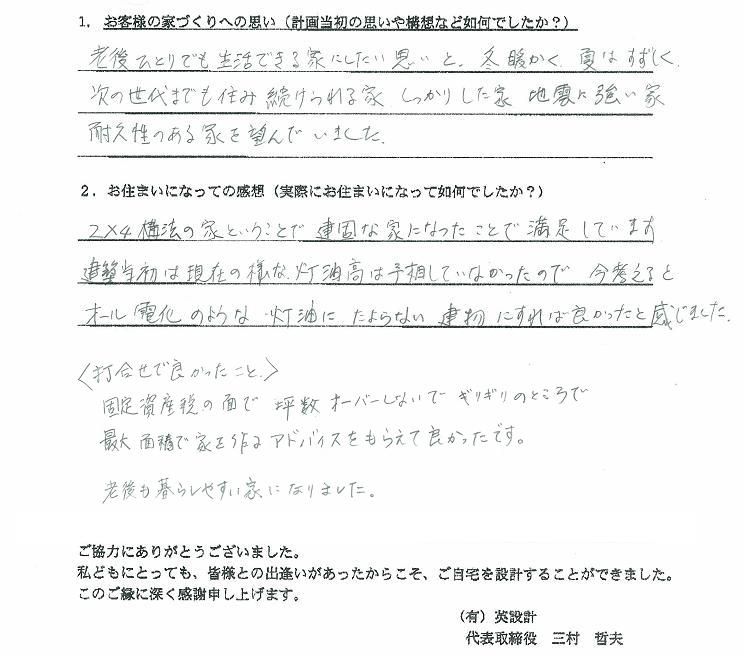 1．お客様の家づくりへの思い（計画当初の思いや構想など如何でしたか？）
老後ひとりでも生活できる家にしたい思いと、冬暖かく、夏はすずしく、
次の世代までも住み続けられる家 しっかりした家 地震に強い家
耐久性のある家を望んでいました。
2．お住まいになっての感想（実際にお住まいになって如何でしたか？）
2×4構法の家ということで 建固な家になったことで満足しています
建築当初は現在の様な、灯油高は予想していなかったので 今考えると
オール電化のような 灯油に たよらない 建物にすれば良かったと感じました。
〈打合せで良かったこと、〉
固定資産税の面で 坪数オーバーしないで ギリギリのところで
最大面積で家を作るアドバイスをもらえて良かったです。
老後も暮らしやすい家になりました。
ご協力にありがとうございました。
私どもにとっても、皆様との出逢いがあったからこそ、ご自宅を設計することができました。
このご縁に深く感謝申し上げます。
（有）英設計
代表取締役 三村 哲夫